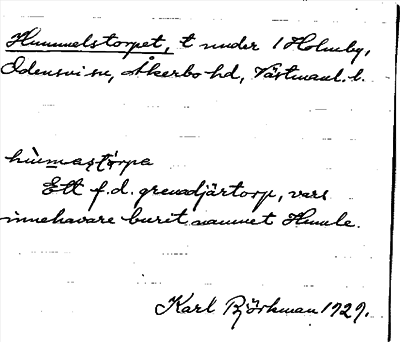 Hummelstorpet, t under 1 Holmby,
Odensvi sn, Åkerbo hd, Västmanl. l.
hùmastórpa
Ett f.d. grenadjärtorp, vars
innehavare burit namnet Humle.
Karl Björkman 1929.